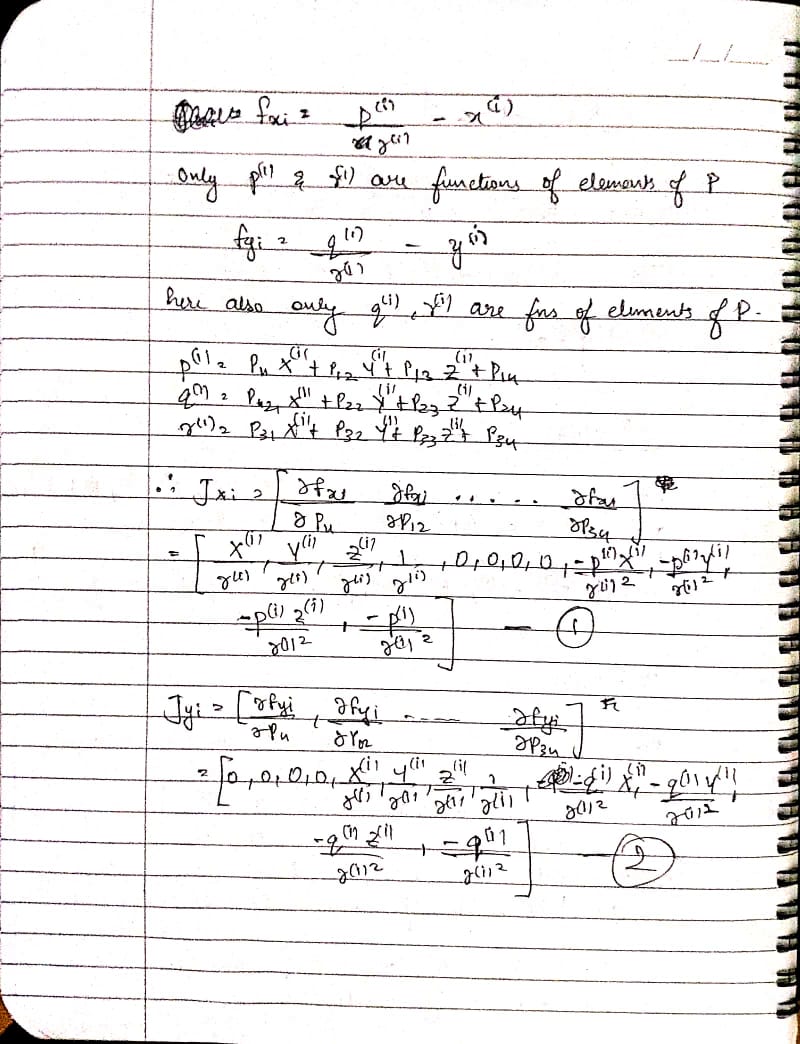 fxi = p^(i)/r^(i) - x^(i)
Only p^(i) & r^(i) are functions of elements of P
fyi = q^(i)/r^(i) - y^(i)
here also only q^(i), r^(i) are fns of elements of P.
p^(i) = P11 X^(i) + P12 Y^(i) + P13 Z^(i) + P14
q^(i) = P21 X^(i) + P22 Y^(i) + P23 Z^(i) + P24
r^(i) = P31 X^(i) + P32 Y^(i) + P33 Z^(i) + P34
∴ Jxi = [∂fxi/∂P11 ∂fxi/∂P12 ...... ∂fxi/∂P34]
= [X^(i)/r^(i), Y^(i)/r^(i), Z^(i)/r^(i), 1/r^(i), 0, 0, 0, 0, -p^(i)X^(i)/r^(i)2, -p^(i)Y^(i)/r^(i)2,
-p^(i)Z^(i)/r^(i)2, -p^(i)/r^(i)2] — ①
Jyi = [∂fyi/∂P11, ∂fyi/∂P12 ------ ∂fyi/∂P34]
= [0, 0, 0, 0, X^(i)/r^(i), Y^(i)/r^(i), Z^(i)/r^(i), 1/r^(i), -q^(i)/r^(i)2 X^(i), -q^(i)Y^(i)/r^(i)2,
-q^(i)Z^(i)/r^(i)2, -q^(i)/r^(i)2] — ②